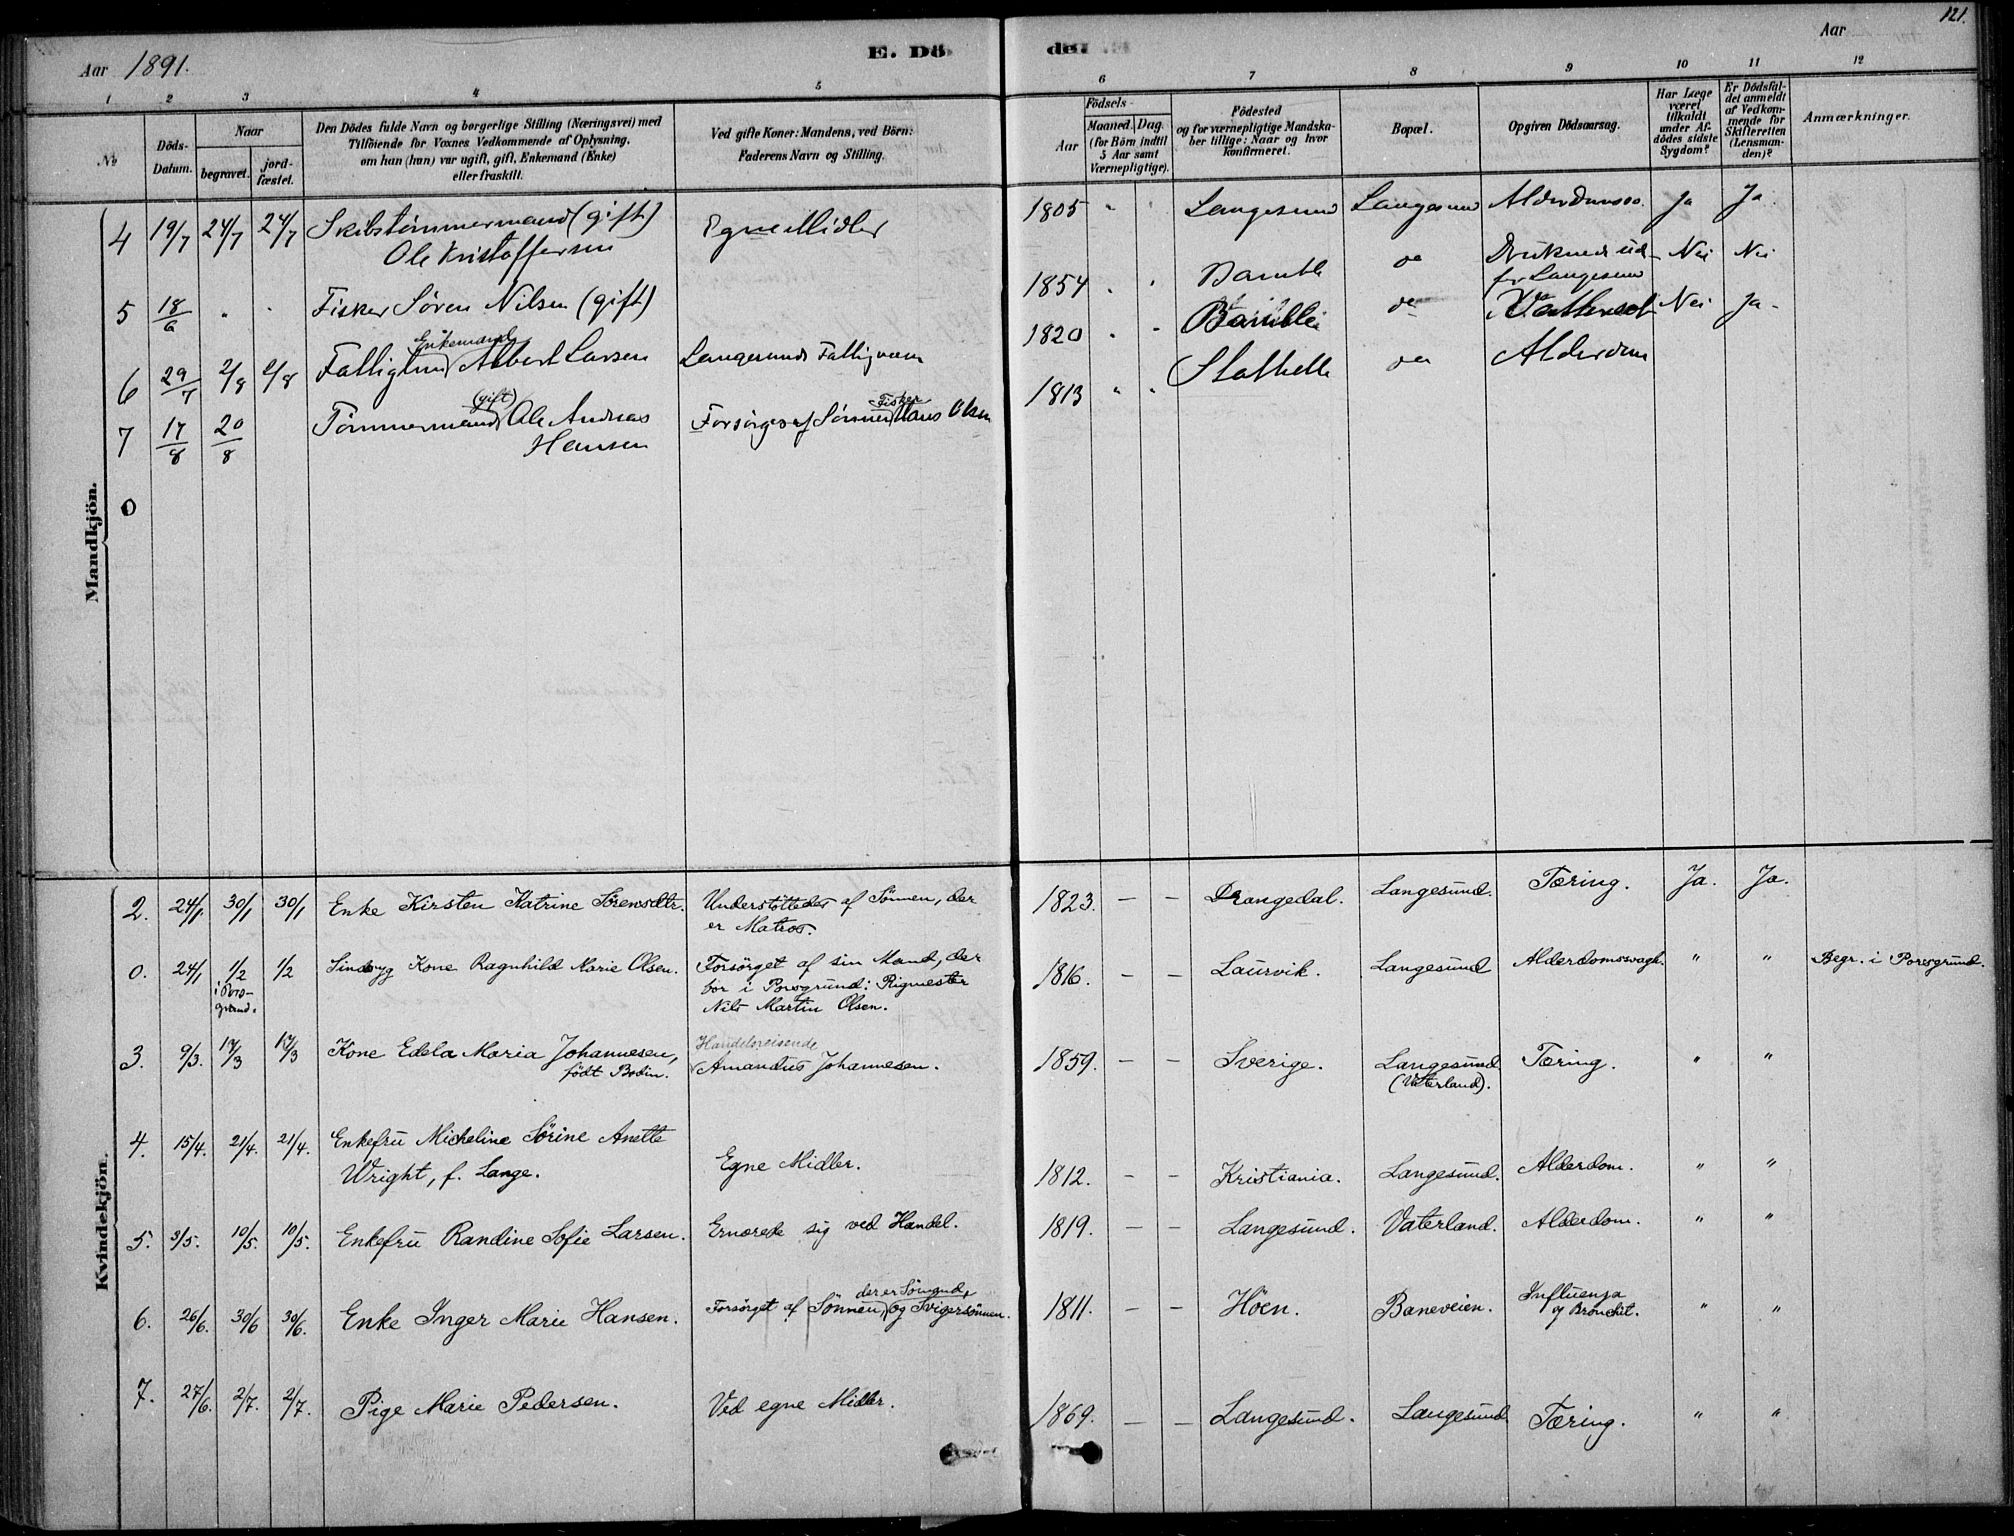 Aar 1891.
E. Dö
de
Aar
121.
1 2 3 4 5 6 7 8 9 10 11 12
No
Döds-Datum.
Naar
begravet.
jord-fæstet.
Den Dödes fulde Navn og borgerlige Stilling (Næringsvei) med
Tilföiende for Voxnes Vedkommende af Oplysning,
om han (hun) var ugift, gift, Enkemand (Enke)
eller fraskilt.
Ved gifte Koner: Mandens, ved Börn:
Faderens Navn og Stilling.
Födsels-
Aar
Maaned. Dag.
(for Börn indtil
5 Aar samt
Værnepligtige).
Födested
og for værnepligtige Mandska-
ber tillige: Naar og hvor
konfirmeret.
Bopæl.
Opgiven Dödsaarsag.
Har Læge
været
tilkaldt
under Af-
dödes sidste
Sygdom?
Er Dödsfal-
det anmeldt
af Vedkom-
mende for
Skifteretten
(Lensman-
den)?
Anmærkninger.
Mandkjön.
4 19/7 24/7 24/7 Skibstømmermand (gift) Egne Midler 1805 " " Langesund Langesund Ja Ja
Ole Kristoffersen
5 18/6 " " Fisker Søren Nilsen (gift) 1854 " " Bamble do Druknede ud- Nei Nei
for Langesund
Enkemand
6 29/7 2/8 2/8 Fattiglem Albert Larsen Langesunds Fattigvæsen 1820 " " Bamble do Nei Ja
(gift) Fisker
7 17/8 20/8 Tømmermand Ole Andreas Forsørges af Sønnen Hans Olsen 1813 " " Stathelle do Alderdom
Hansen
0
Kvindekjön.
2. 24/1 30/1 30/1 Enke Kirsten Katrine Sörensdtr. Understöttedes af Sönnen, der 1823. — — Drangedal. Langesund. Tæring. Ja. Ja.
er Matros.
0. 24/1 1/2 1/2 Sindssyg Kone Ragnhild Marie Olsen. Forsörget af sin Mand, der 1816. — — Laurvik. Langesund Alderdomssvagh. " " Begr. i Porsgrund.
i Pors-
grund.
bor i Porsgrund: Rigmester
Nils Martin Olsen.
3. 9/3. 17/3 17/3 Kone Edela Maria Johannesen, Handelsreisende 1859. — — Sverige. Langesund Tæring. " "
födt Bodin. Amandus Johannesen. (Vaterland).
4. 15/4. 21/4. 21/4. Enkefru Micheline Sörine Anette
Wright, f. Lange. Egne Midler. 1812. — — Kristiania. Langesund. Alderdom. " "
5. 3/5. 10/5. 10/5. Enkefru Randine Sofie Larsen. Ernærede sig ved Handel. 1819. — — Langesund. Vaterland. Alderdom. " "
der er Sömand,
6. 26/6. 30/6 30/6. Enke Inger Marie Hansen. Forsörget af Sönnen og Svigersönnen. 1811. — — Höen. Baneveien. Influenza " "
og Bronchit.
7. 27/6. 2/7. 2/7. Pige Marie Pedersen. Ved egne Midler. 1869. — — Langesund. Langesund Tæring. " "